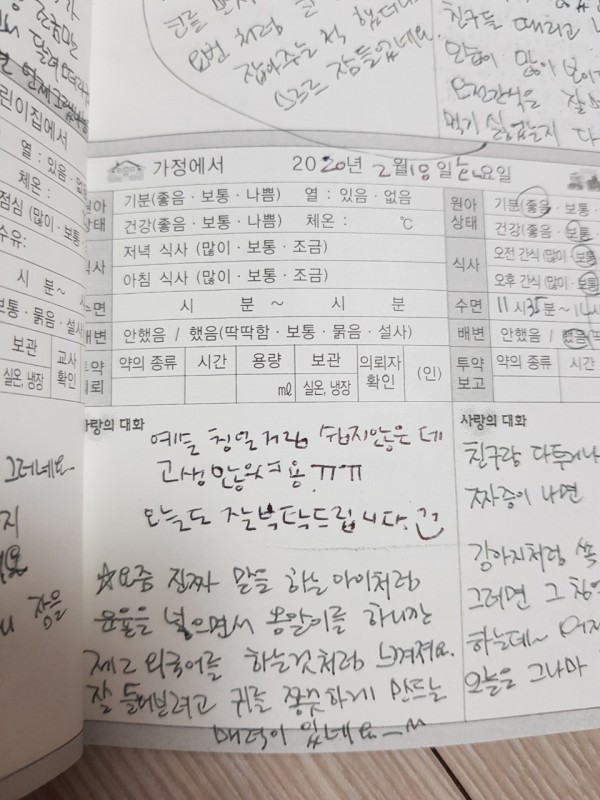 코를
요번 처럼
잡아주는 척 했더니
스르르 잠들었네요.
친구들 때리고
많이 보이
오전간식은 잘
먹기 싫었는지 다
어린이집에서
열 : 있음 · 없음
체온 :
점심 (많이 · 보통
수유:
시 분~
보통 · 묽음 · 설사)
보관 교사 확인
실온, 냉장
그러네요
지
잠을
가정에서 2020년 2월 18일 요일
원아 상태 기분(좋음 · 보통 · 나쁨) 열 : 있음 · 없음
건강(좋음 · 보통 · 나쁨) 체온 : ℃
식사 저녁 식사 (많이 · 보통 · 조금)
아침 식사 (많이 · 보통 · 조금)
수면 시 분 ~ 시 분
배변 안했음 / 했음(딱딱함 · 보통 · 묽음 · 설사)
투약 의뢰 약의 종류 시간 용량 보관 의뢰자 확인 (인)
㎖ 실온, 냉장
사랑의 대화
예능 촬영처럼 쉽지않은 데
고생 많으셔용 ㅠㅠ
오늘도 잘부탁드립니다.
☆요즘 진짜 말을 하는 아이처럼
운율을 넣으면서 옹알이를 하니깐
제2 외국어를 하는것처럼 느껴져요.
잘 들어보려고 귀를 쫑긋하게 만드는
매력이 있네요
원아 상태 기분(좋음 · 보통
건강(좋음 · 보통
식사 오전 간식 (많이 · 보통
오후 간식 (많이 · 보통
수면 11시 35분 ~ 14시
배변 안했음 / 했음(
투약 보고 약의 종류 시간
사랑의 대화
친구랑 다투거나
짜증이 나면
강아지처럼
그러면 그
하는데~
오늘은 그나마